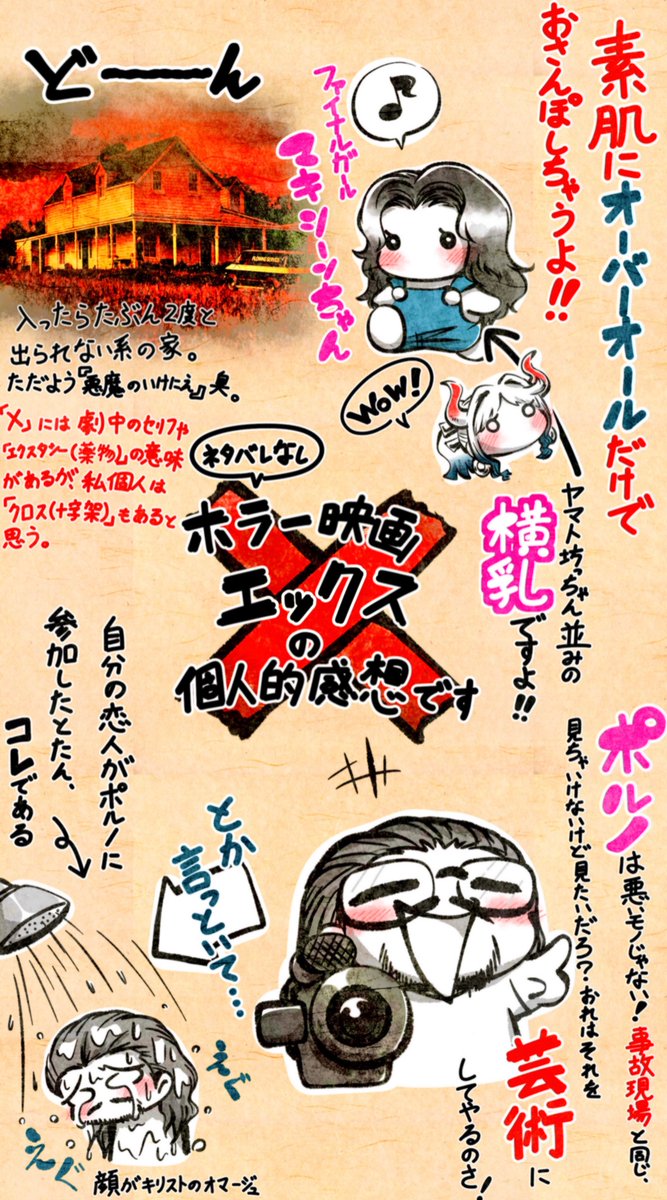 素肌にオーバーオールだけで
おさんぽしちゃうよ!!
ファイナルガール
マキシーンちゃん
どーーん
入ったらたぶん2度と
出られない系の家。
ただよう『悪魔のいけにえ』臭。
「X」には劇中のセリフや
「エクスタシー(薬物)」の意味
があるが、私個人は
「クロス(十字架)」もあると
思う。
WOW!
ヤマト坊っちゃん並みの
横乳ですよ!!
ネタバレなし
ホラー映画
エックス
の
個人的感想です
ポルノは悪いモノじゃない!事故現場と同じ、
見ちゃいけないけど見たいだろ?おれはそれを
芸術に
してやるのさ!
とか
言っといて…
自分の恋人がポルノに
参加したとたん、
コレである
えぐ
えぐ
顔がキリストのオマージュ